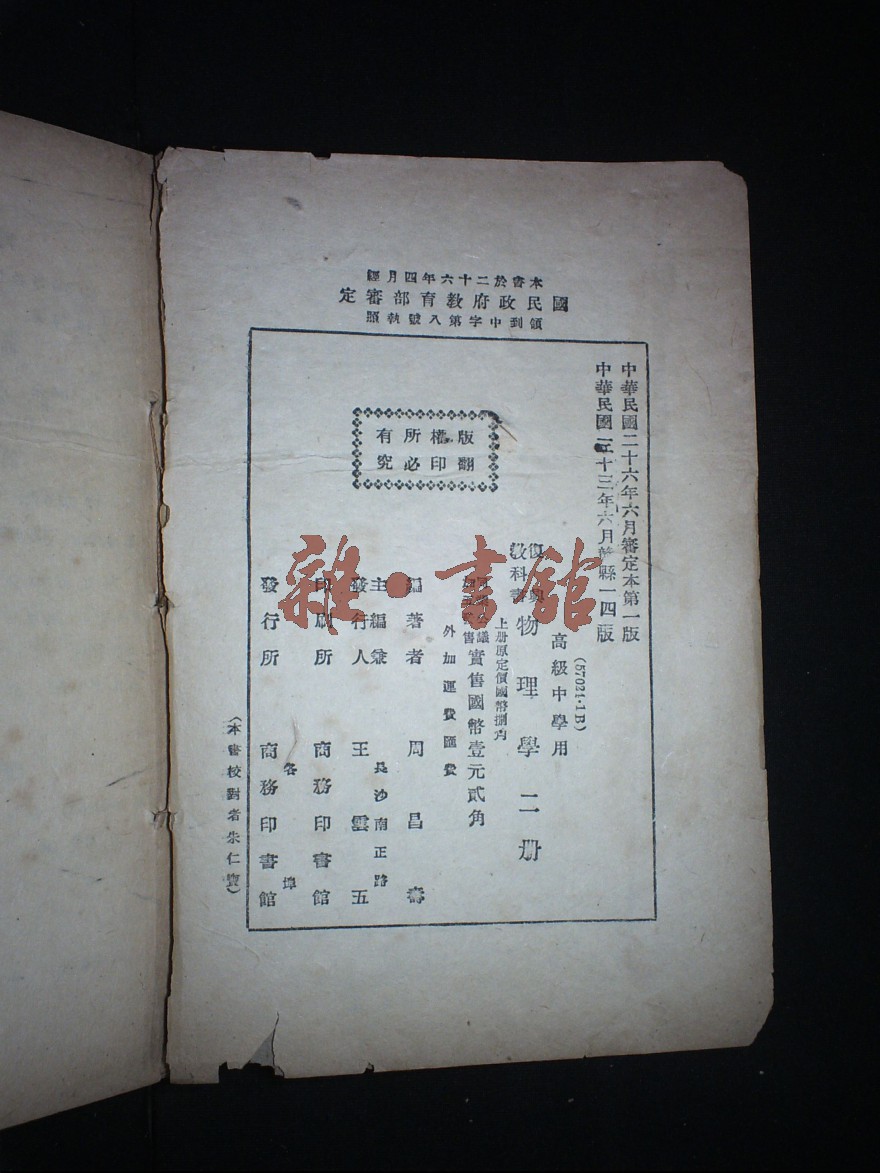 本書於二十六年四月經
國民政府教育部審定
領到中字第八號執照
中華民國二十六年六月審定本第一版
中華民國三十三年六月贛縣一四版
(57021·1B)
高級中學用
復興教科書
物理學二册
上册原定價國幣捌角
實售國幣壹元貳角
外加運費匯費
版權所有
翻印必究
編著者 周昌壽
主編兼發行人 王雲五
長沙南正路
印刷所 商務印書館
各埠
發行所 商務印書館
(本書校對者朱仁寶)
雜·書館